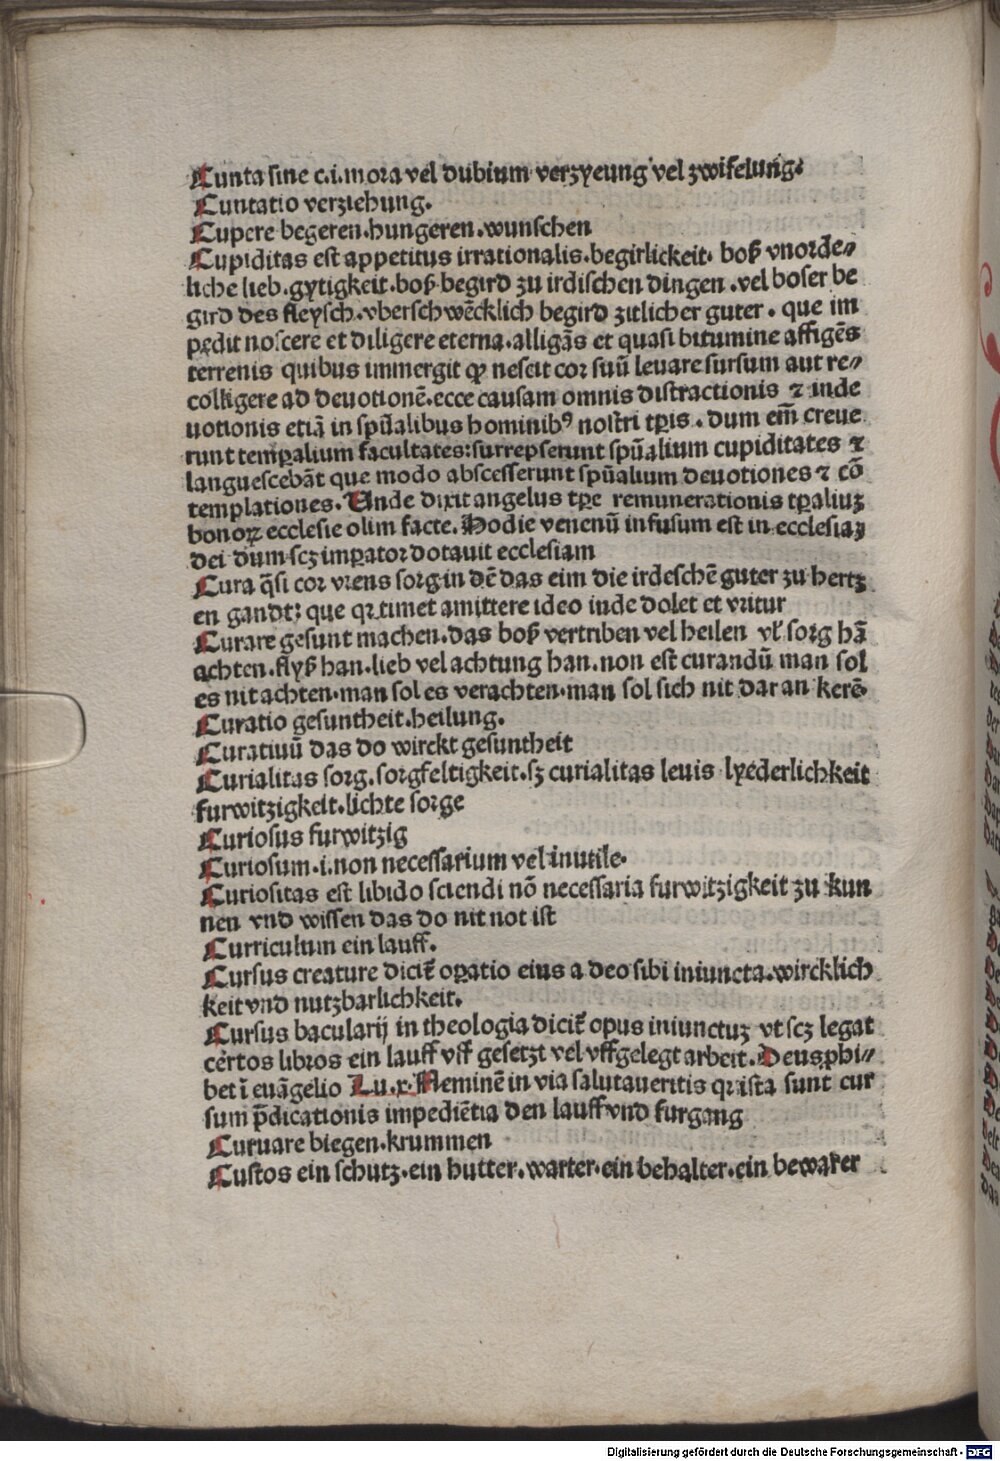 Cunta sine c.i.mora vel dubium verzyeung vel zwifelung.
Cuntatio verziehung.
Cupere begeren.hungeren.wunschen
Cupiditas est appetitus irrationalis.begirlickeit. boß vnorde⸗
liche lieb.gytigkeit.boß begird zu irdischen dingen .vel boser be
gird des fleysch.vberschwēcklich begird zitlicher guter. que im
pedit noscere et diligere eterna.alligās et quasi bitumine affigēs
terrenis quibus immergit ꝙ nescit cor suū leuare sursum aut re⸗
colligere ad deuotionē.ecce causam omnis distractionis ⁊ inde
uotionis etiā in sp̄ualibus hominibꝰ nostri tꝑis. dum em̄ creue
runt temꝑalium facultates:surrepserunt sp̄ualium cupiditates ⁊
languescebāt que modo abscesserunt sp̄ualium deuotiones ⁊ cō
templationes. Unde dixit angelus tꝑe remunerationis tꝑaliuꝫ
bonoꝝ ecclesie olim facte. Hodie venenū infusum est in ecclesiaꝫ
dei dum scꝫ imꝑator dotauit ecclesiam
Cura q̄si cor vrens sorg in dē das eim die irdeschē guter zu hertz
en gandt; que qꝛ timet amittere ideo inde dolet et vritur
Curare gesunt machen.das boß vertriben vel heilen vl̄ sorg hā
achten.flyß han.lieb vel achtung han.non est curandū man sol
es nit achten.man sol es verachten.man sol sich nit dar an kerē.
Curatio gesuntheit.heilung.
Curatiuū das do wirckt gesuntheit
Curialitas sorg.sorgfeltigkeit.sꝫ curialitas leuis lyederlichkeit
furwitzigkeit.lichte sorge
Curiosus furwitzig
Curiosum.i.non necessarium vel inutile.
Curiositas est libido sciendi nō necessaria furwitzigkeit zu kun
nen vnd wissen das do nit not ist
Curriculum ein lauff.
Cursus creature dicit̄ oꝑatio eius a deo sibi iniuncta.wircklich
keit vnd nutzbarlichkeit.
Cursus bacularij in theologia dicit̄ opus iniunctuꝫ vt scꝫ legat
certos libros ein lauff vff gesetzt vel vffgelegt arbeit. Deus ꝓhi⸗
bet ī euāgelio Lu.x. Neminē in via salutaueritis qꝛ ista sunt cur
sum p̄dicationis impediētia den lauff vnd furgang
Curuare biegen.krummen
Custos ein schutz.ein hutter.warter.ein behalter.ein bewarer
Digitalisierung gefördert durch die Deutsche Forschungsgemeinschaft - DFG